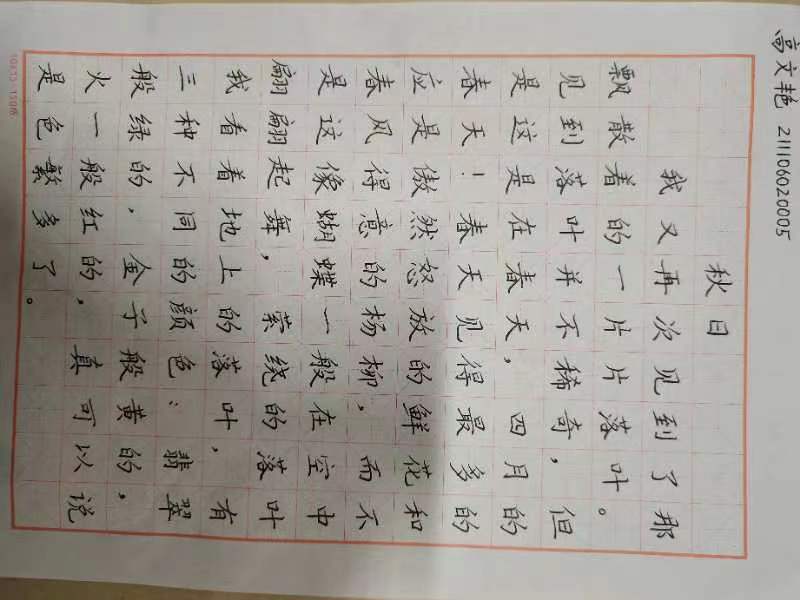 高文艳 211106020005
秋日
我又再次见到了那
飘散着的一片片落叶。
见到落叶并不稀奇，但
是这是在春天，四月的
春天！春天见得最多的
应是傲然怒放的鲜花和
春风得意的杨柳，而不
是这像蝴蝶一般在空中
翩翩起舞，萦绕的落叶
我看着地上的落叶，有
三种不同的颜色：翡翠
般绿的，金子般黄的，
火一般红的，真可以说
是色繁多了。